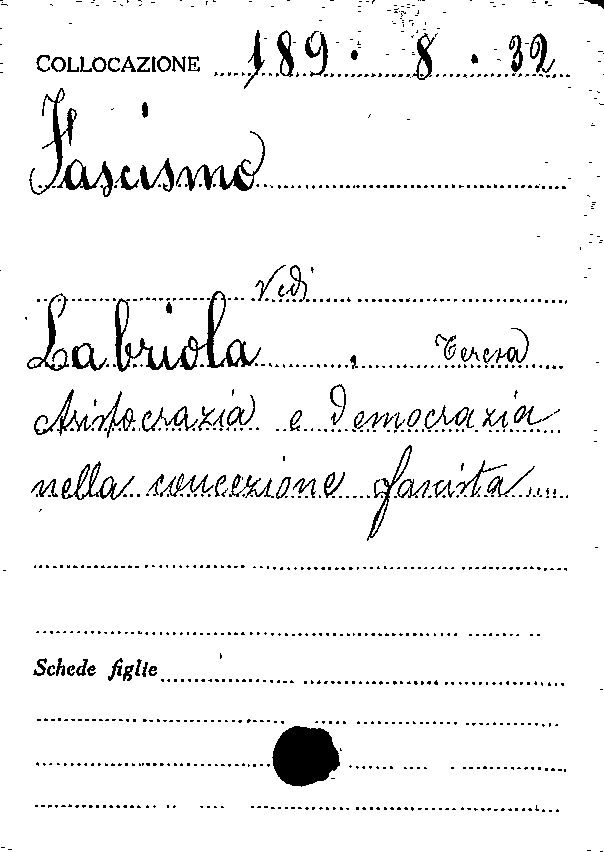 COLLOCAZIONE 189.8.32
Fascismo
Vedi
Labriola, Teresa
Aristocrazia e democrazia
nella concezione fascista....
Schede figlie